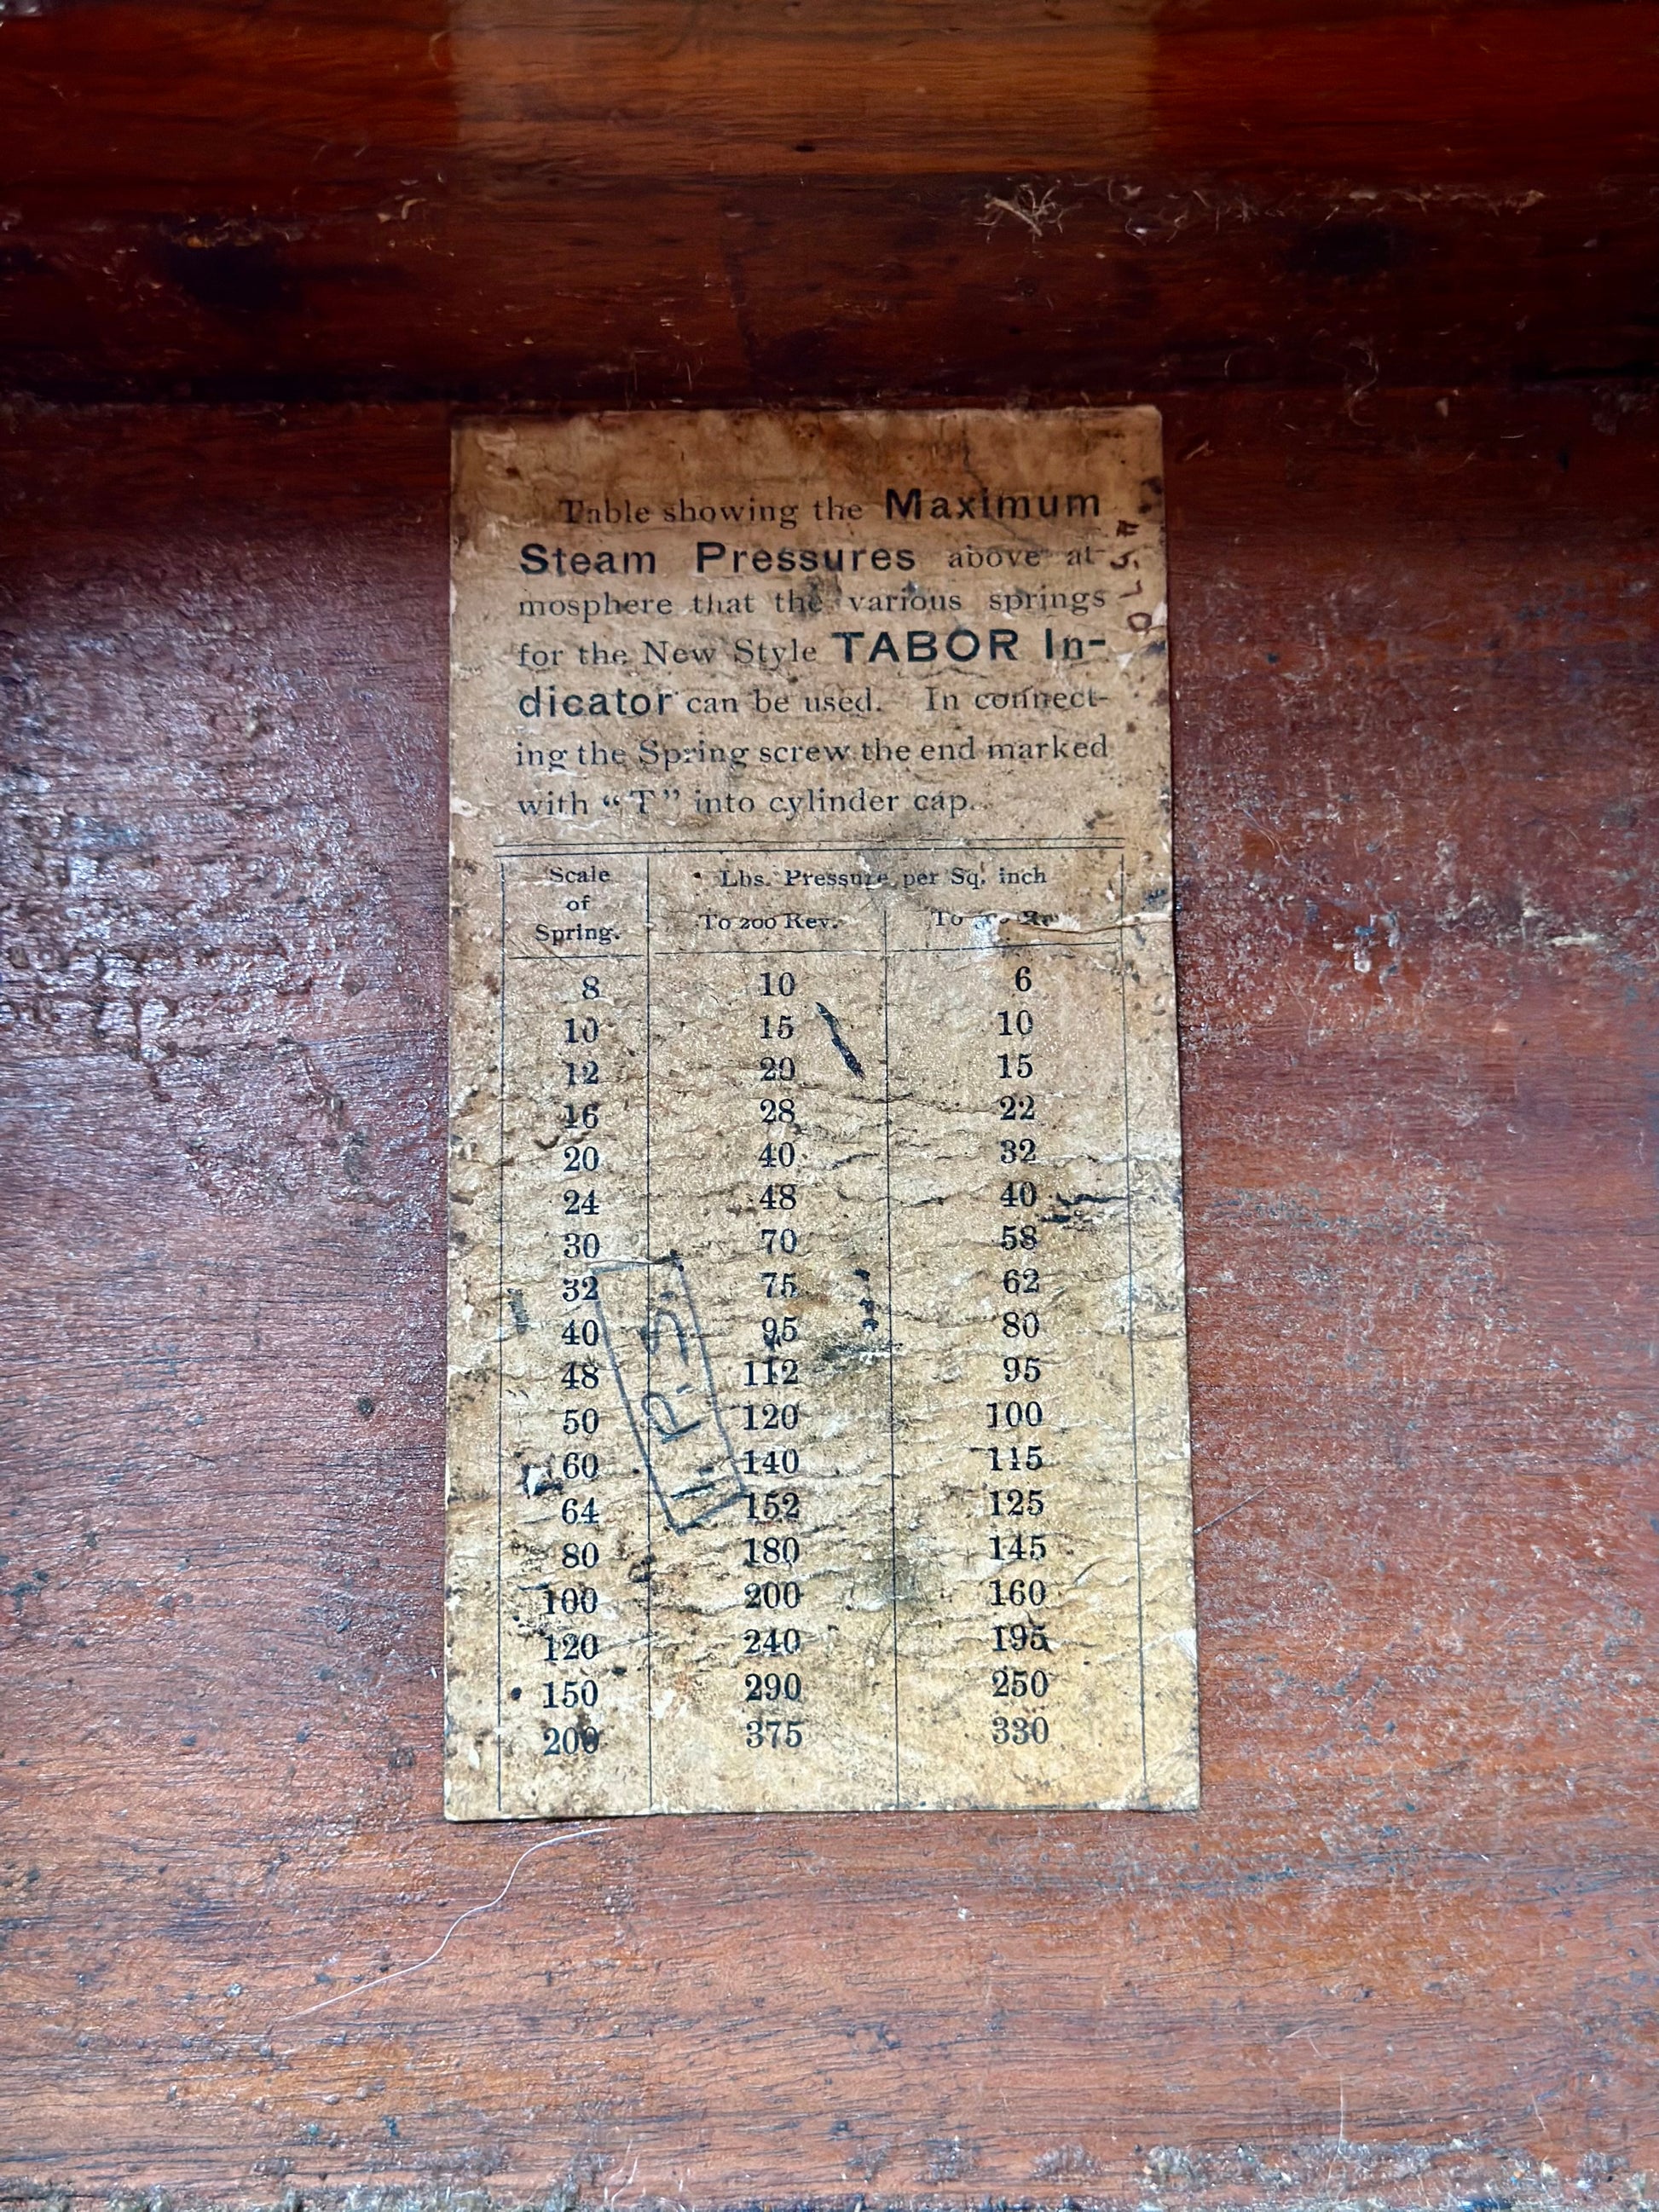 Table showing the Maximum
Steam Pressures above at-
mosphere that the various springs
for the New Style TABOR In-
dicator can be used. In connect-
ing the Spring screw the end marked
with “T” into cylinder cap.
Scale of Spring. Lbs. Pressure per Sq. inch
To 200 Rev. To
8 10 6
10 15 10
12 20 15
16 28 22
20 40 32
24 48 40
30 70 58
32 75 62
40 95 80
48 112 95
50 120 100
60 140 115
64 152 125
80 180 145
100 200 160
120 240 195
150 290 250
200 375 330